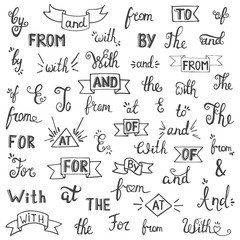 by and from TO of
FROM with from BY The and
by of with AND and FROM
of & To from at & with
from E AT OF to and The
FOR & E OF &
For FOR By and for
With at the from AT And
WITH the For from With